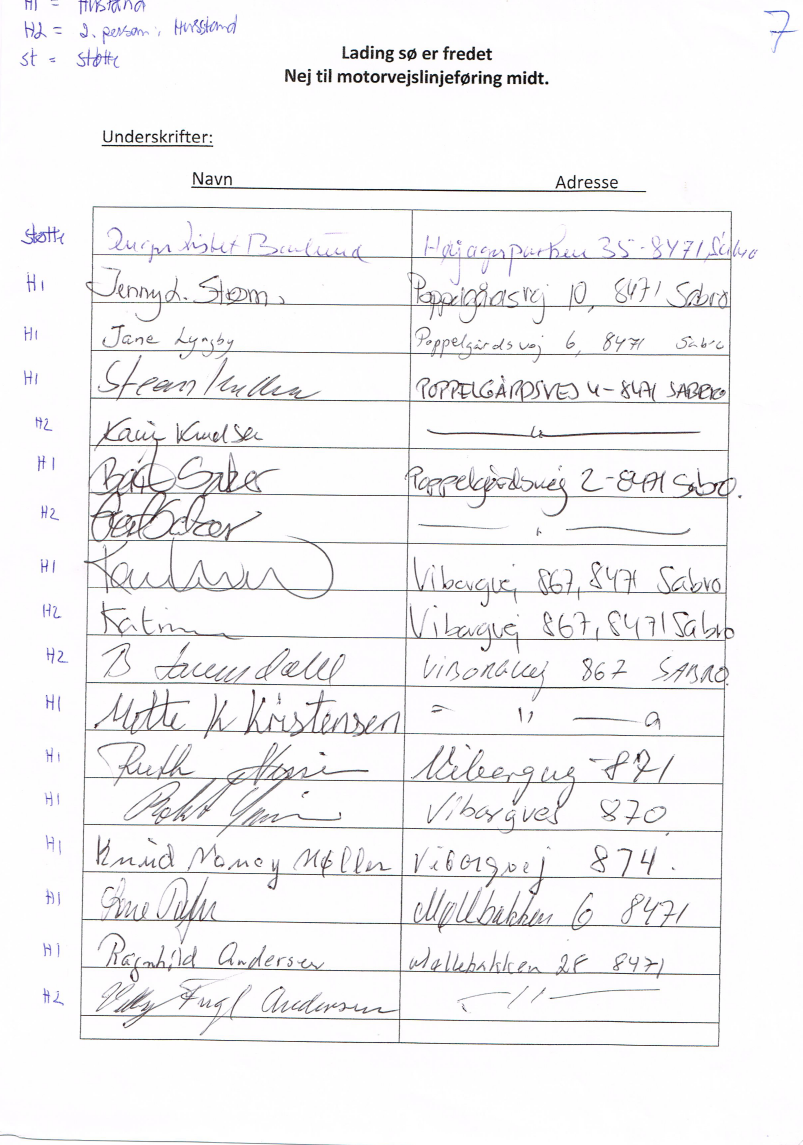 H1 = Husstand
H2 = 2. person i Husstand
st = støtte
7
Lading sø er fredet
Nej til motorvejslinjeføring midt.
Underskrifter:
Navn Adresse
støtte Barlund Højagerparken 35-8471 Sabro
H1 Jenny L. Strøm, Poppelgårdsvej 10, 8471 Sabro
H1 Jane Lyngby Poppelgårdsvej 6, 8471 Sabro
H1 Steen POPPELGÅRDSVEJ 4-8471 SABRO
H2 Karin Knudsen
H1 Poppelgårdsvej 2-8471 Sabro.
H2
H1 Viborgvej 867, 8471 Sabro
H2 Viborgvej 867, 8471 Sabro
H2 B VIBORGVEJ 867 SABRO
H1 Mette K Kristensen = " a
H1 Ruth 871
H1 Viborgvej 870
H1 Knud Møller Viborgvej 874.
H1 Møllebakken 6 8471
H1 Ragnhild Andersen Møllebakken 28 8471
H2 Fugl Andersen "